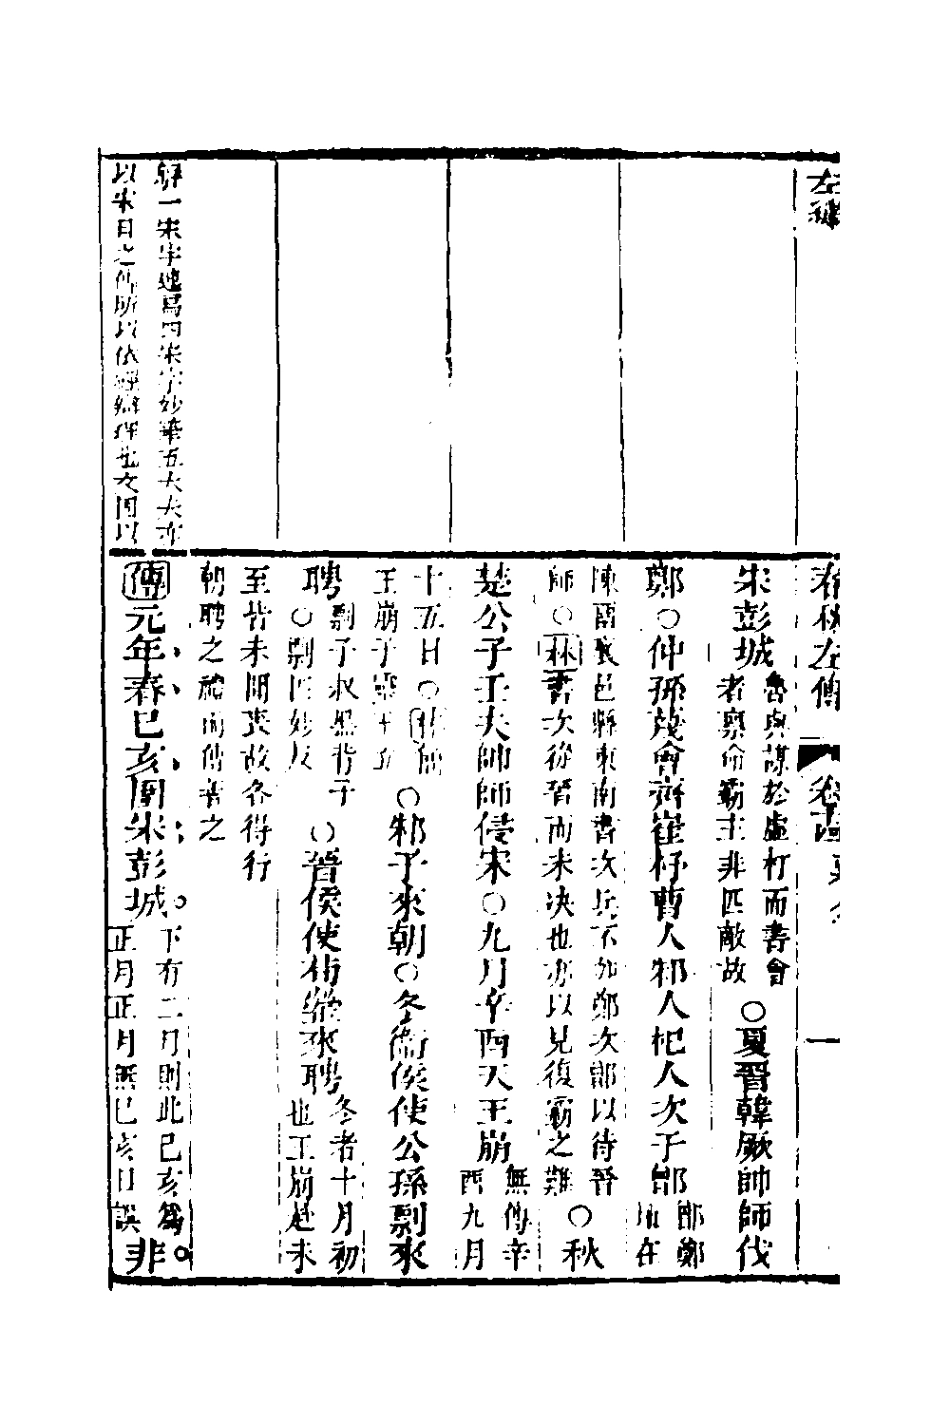 左繡
春秋左傳
宋彭城
魯與謀於虛朾而書會
者稟命霸主非匹敵故
○夏晉韓厥帥師伐
鄭○仲孫蔑會齊崔杼曹人邾人杞人次于鄫
鄫鄭
地在
陳留襄邑縣東南書次兵不加鄭次鄫以待晉
師○林書次從晉而未決也亦以見復霸之難
○秋
楚公子壬夫帥師侵宋○九月辛酉天王崩
無傳辛
酉九月
十五日○林簡
王崩子靈王立
○邾子來朝○冬衛侯使公孫剽來
聘
剽子叔黑背子
○剽匹妙反
○晉侯使荀罃來聘
冬者十月初
也王崩赴未
至皆未聞喪故各得行
朝聘之禮而傳善之
傳元年春己亥圍宋彭城
下有二月則此己亥爲
正月正月無己亥日誤
非
解一宋字連寫四宋字妙筆五大夫亦
以宋目之傳所以依經辨理也文固以